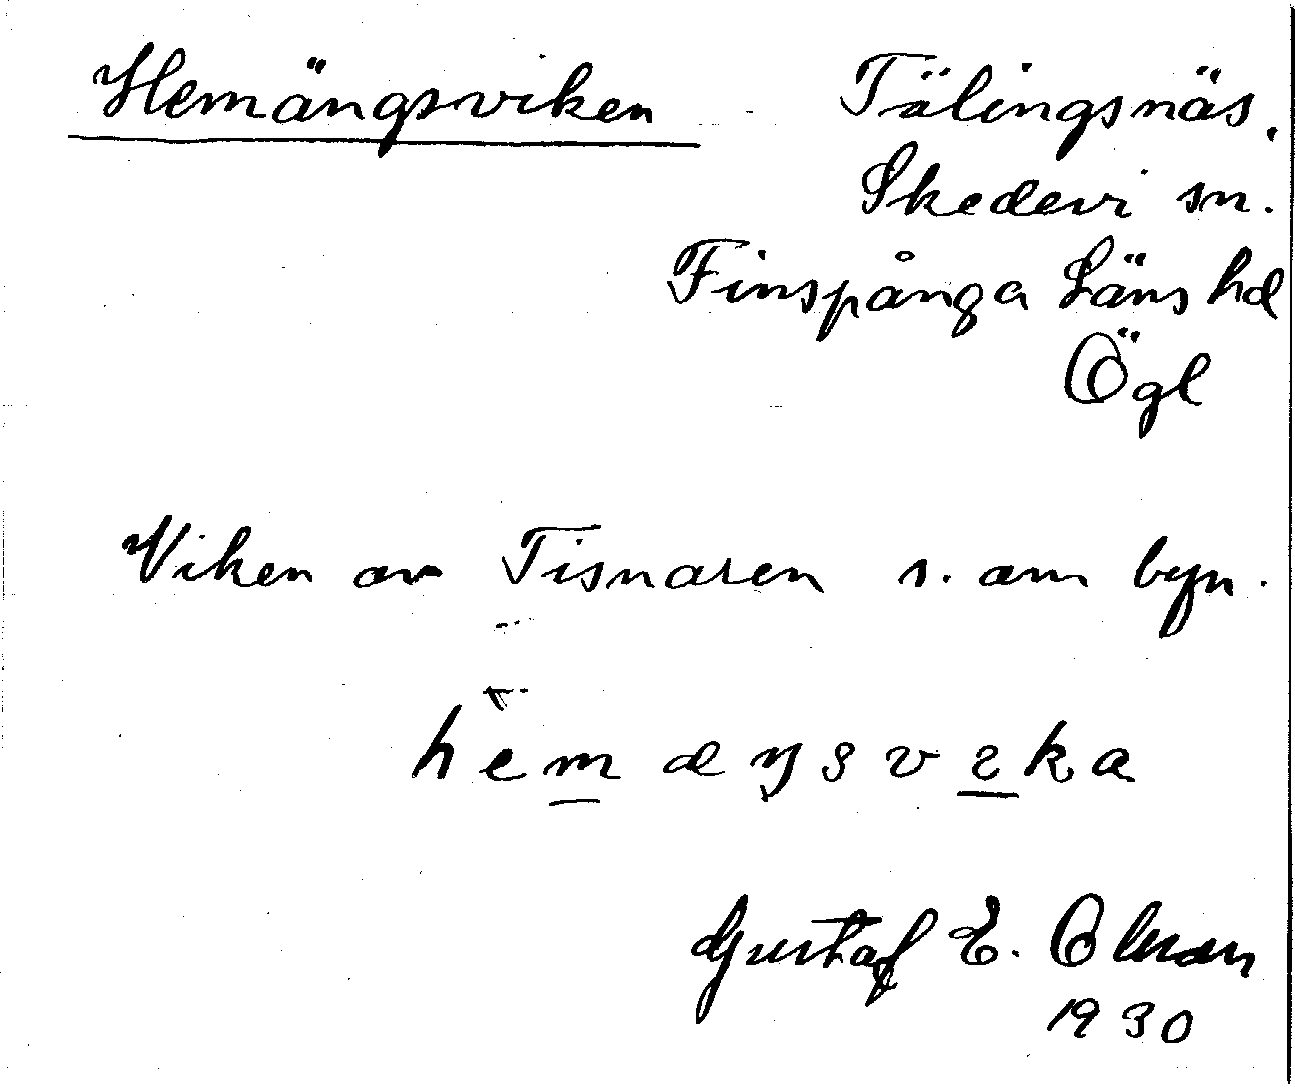 Hemängsviken Tälingsnäs.
Skedevi sn.
Finspånga Läns hd
Ögl
Viken av Tisnaren s. om byn.
Gustaf E. Olsson
1930